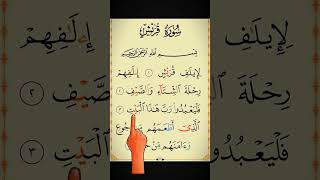 سُورَةُ قُرَيْشٍ
بِسْمِ اللَّهِ الرَّحْمَٰنِ الرَّحِيمِ
لِإِيلَٰفِ قُرَيْشٍ ١ إِۦلَٰفِهِمْ
رِحْلَةَ الشِّتَآءِ وَالصَّيْفِ ٢
فَلْيَعْبُدُوا۟ رَبَّ هَٰذَا الْبَيْتِ ٣
الَّذِىٓ أَطْعَمَهُم مِّن جُوعٍ
وَءَامَنَهُم مِّنْ
إِۦلَٰفِهِمْ
الصَّيْفِ ٢
فَلْيَعْبُدُ
الْبَيْتِ ٣